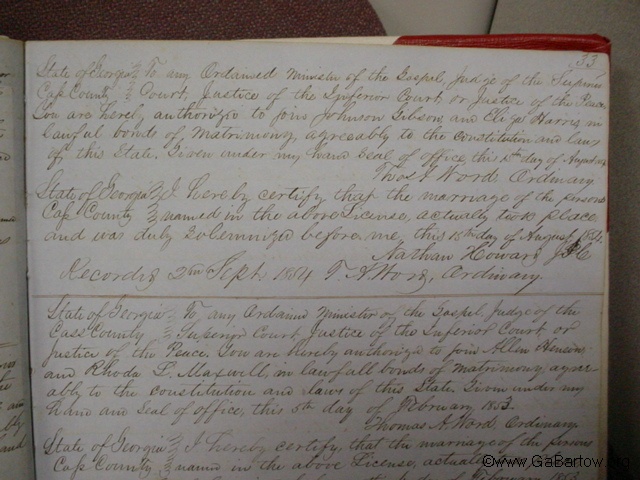 33
State of Georgia } To any Ordained Minister of the Gospel, Judge of the Superior
Cass County } Court, Justice of the Inferior Court or Justice of the Peace.
You are hereby authorized to join Johnson Gibson and Eliza Harris in
lawful bonds of Matrimony, agreeably to the constitution and laws
of this State. Given under my hand Seal of office this day of August
Thos A Word, Ordinary
State of Georgia } I hereby certify that the marriage of the persons
Cass County } named in the above License, actually took place
and was duly Solemnized before me, this 18th day of August 1854.
Nathan Howard J.P.
Recorded 2nd Sept. 1854 T. A Word, Ordinary.
State of Georgia } To any Ordained Minister of the Gospel, Judge of the
Cass County } Superior Court, Justice of the Inferior Court or
Justice of the Peace. You are hereby authorized to join Allen Henson,
and Rhoda L. Maxwell, in lawfull bonds of matrimony, agree
ably to the constitution and laws of this State. Given under my
hand and Seal of office, this 5th day of February 1853.
Thomas A. Word, Ordinary.
State of Georgia } I hereby certify, that the marriage of the persons
Cass County } named in the above License, actually
©www.GaBartow.org